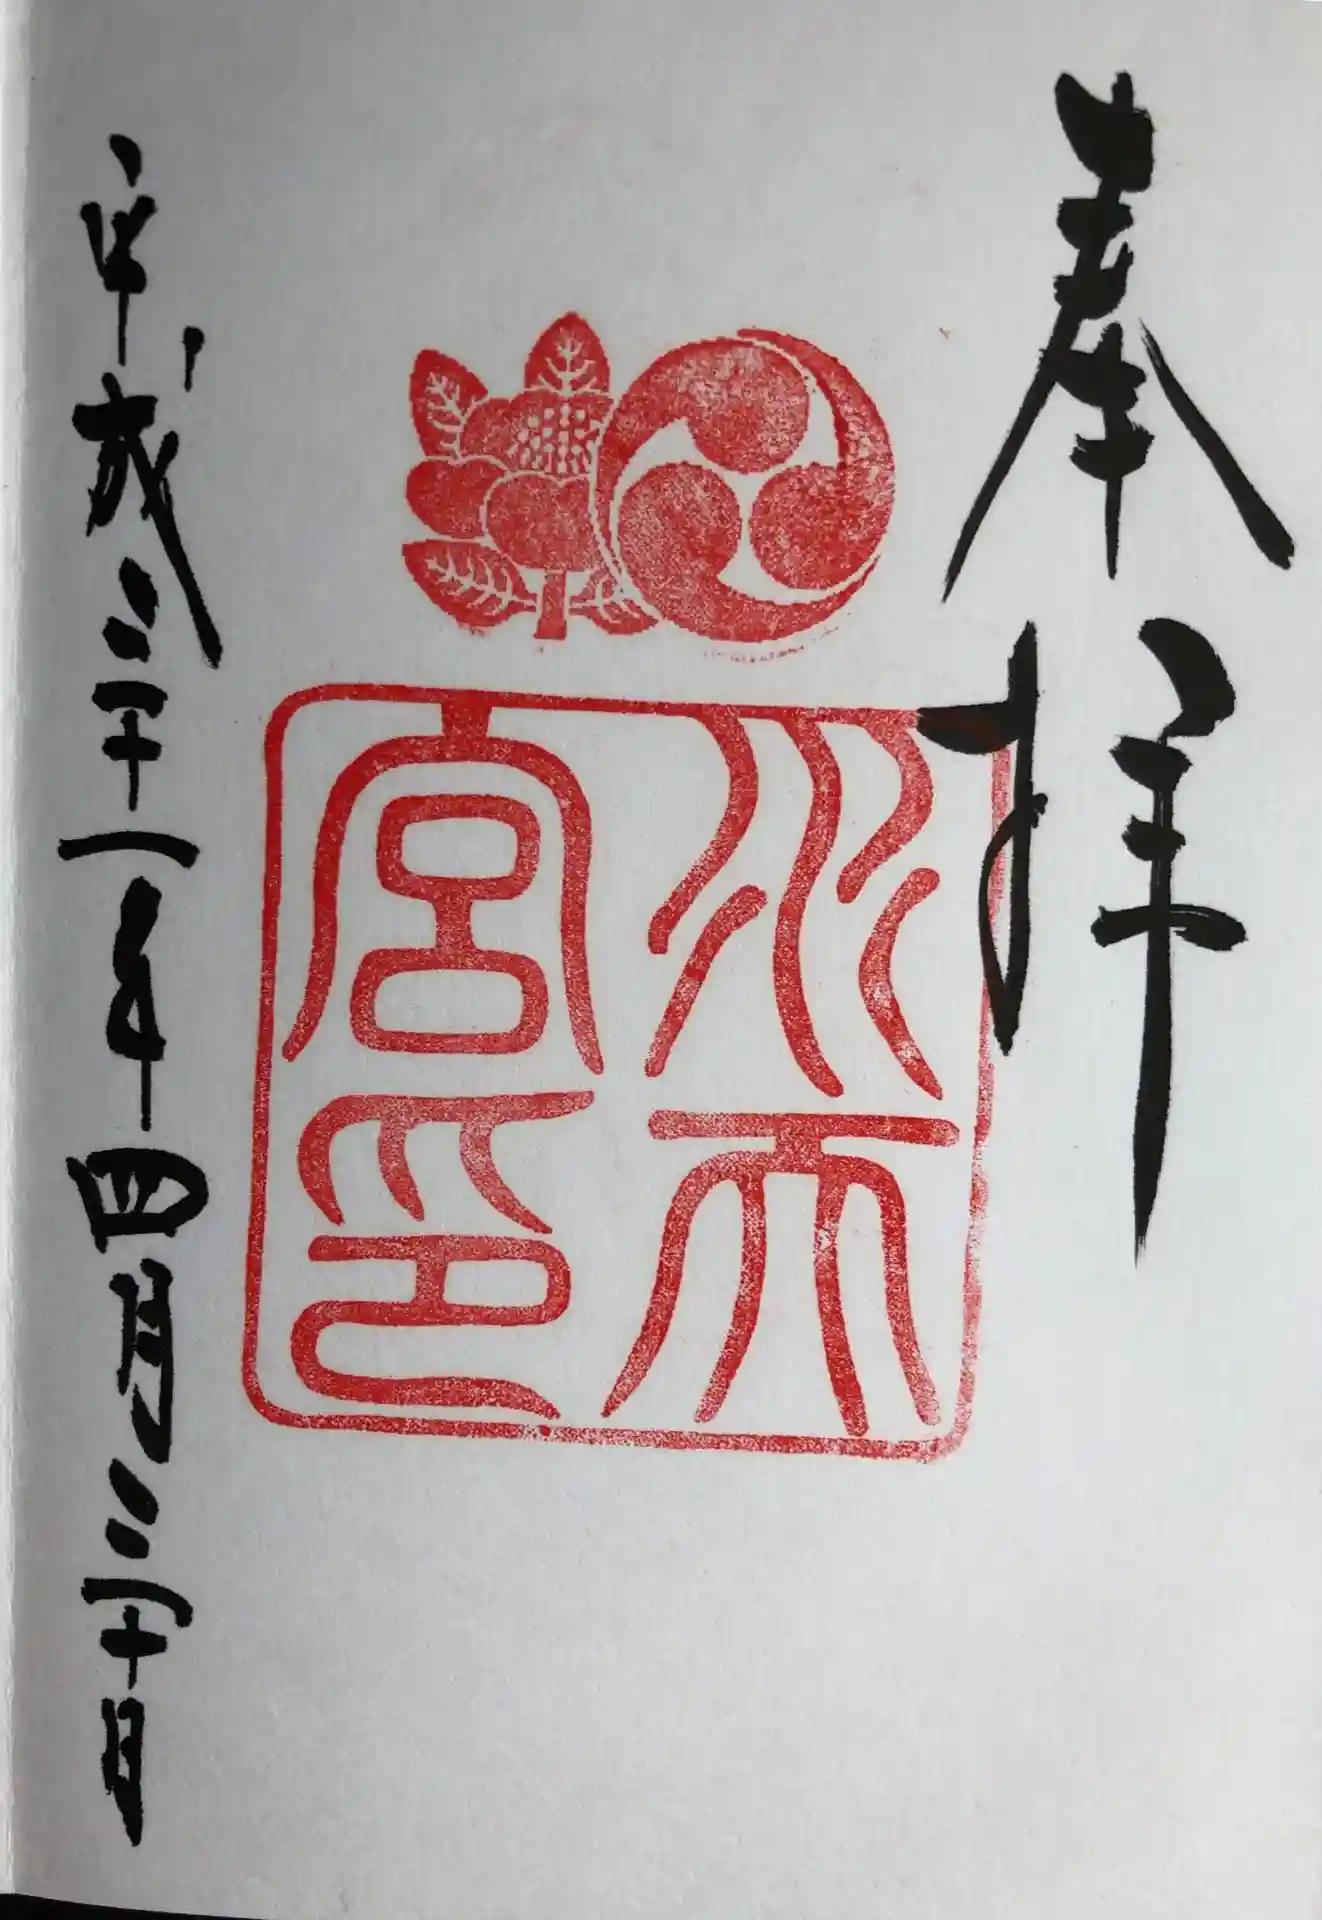 奉拝
水天
宮印
平成三十一年四月三十日